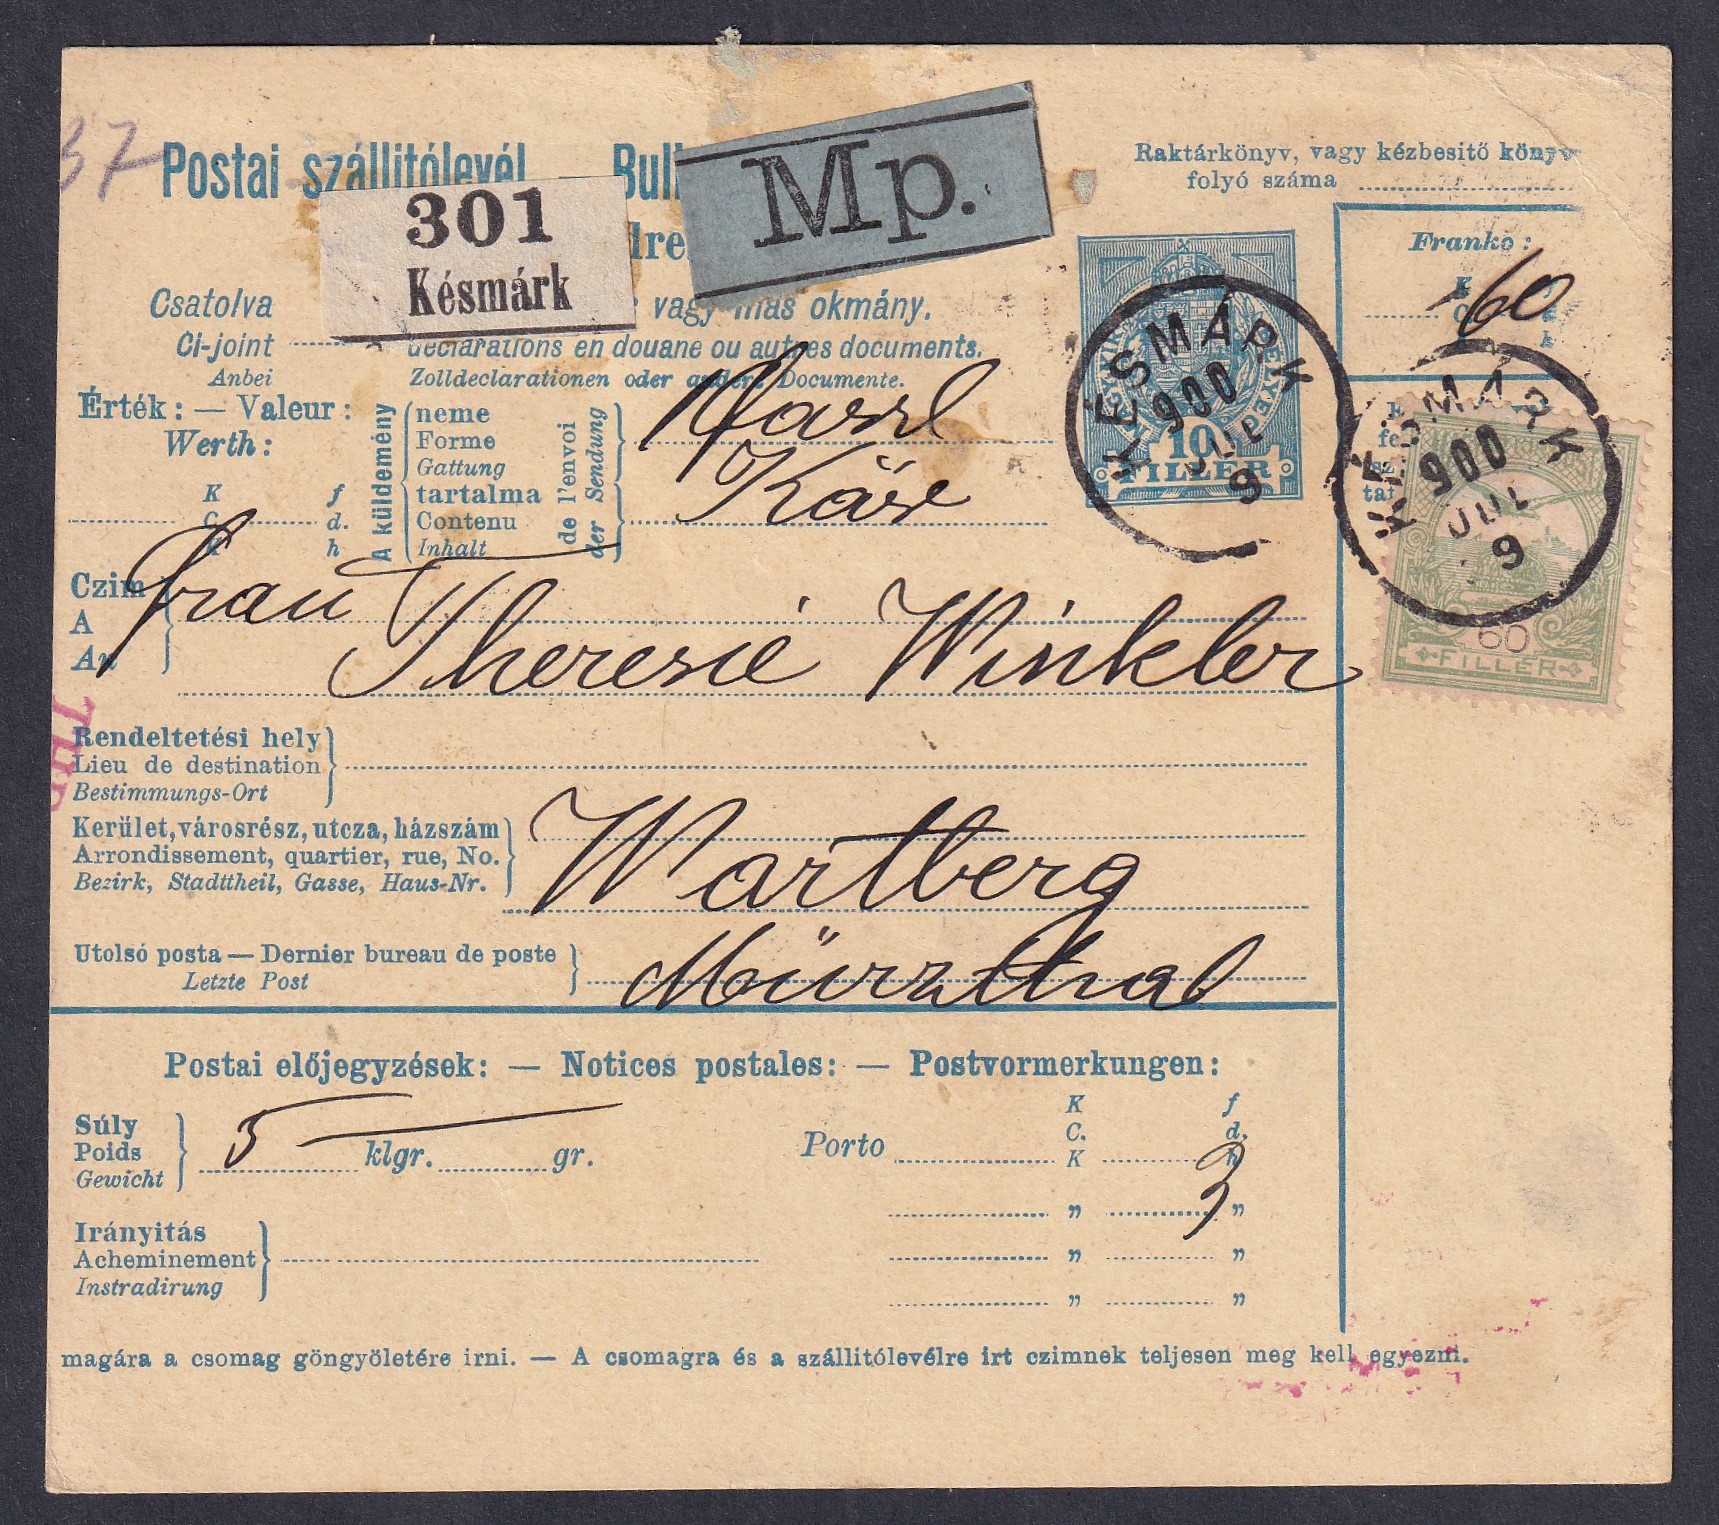 37
Postai szállitólevél — Bull
Mp.
301
Késmárk
dre
Raktárkönyv, vagy kézbesitő könyv
folyó száma
Franko:
60
Csatolva
vagy más okmány.
Ci-joint
déclarations en douane ou autres documents.
Anbei
Zolldeclarationen oder andere Documente.
MAGYAR KIR.
BÉLYEG
10
FILLÉR
KÉSMÁRK
900
JUL
9
KÉSMÁRK
900
JUL
9
60
FILLÉR
Érték: — Valeur:
Werth:
K f
C. d.
K h
A küldemény
neme
Forme
Gattung
tartalma
Contenu
Inhalt
de l'envoi
der Sendung
Käse
Czim
A
An
Frau Theresie Winkler
Rendeltetési hely
Lieu de destination
Bestimmungs-Ort
Kerület, városrész, utcza, házszám
Arrondissement, quartier, rue, No.
Bezirk, Stadttheil, Gasse, Haus-Nr.
Wartberg
Utolsó posta — Dernier bureau de poste
Letzte Post
Mürzthal
Postai előjegyzések: — Notices postales: — Postvormerkungen:
Súly
Poids
Gewicht
5 klgr. gr.
Porto
K f
C. d.
K h
„ „
„ „
„ „
Irányitás
Acheminement
Instradirung
magára a csomag göngyöletére irni. — A csomagra és a szállitólevélre irt czimnek teljesen meg kell egyezni.